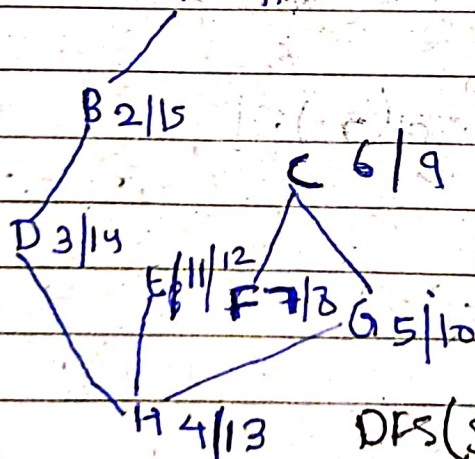 B 2/15
C 6/9
D 3/14
E 11/12
F 7/8
G 5/10
H 4/13
DFS(